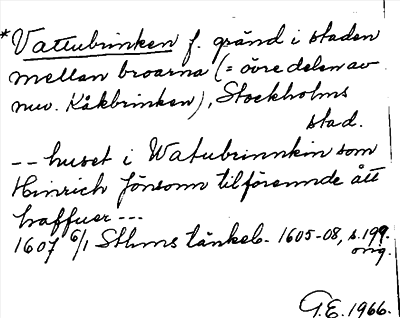 *Vattubrinken f. gränd i staden
mellan broarna (= övre delen av
nuv. Kåkbrinken), Stockholms
stad.
-- huset i Watubrinnkin som
Hinrich Jönsonn tilförennde ått
haffuer ---
1607 6/1 Sthms tänkeb. 1605-08, s. 199.
orig.
G.E. 1966.